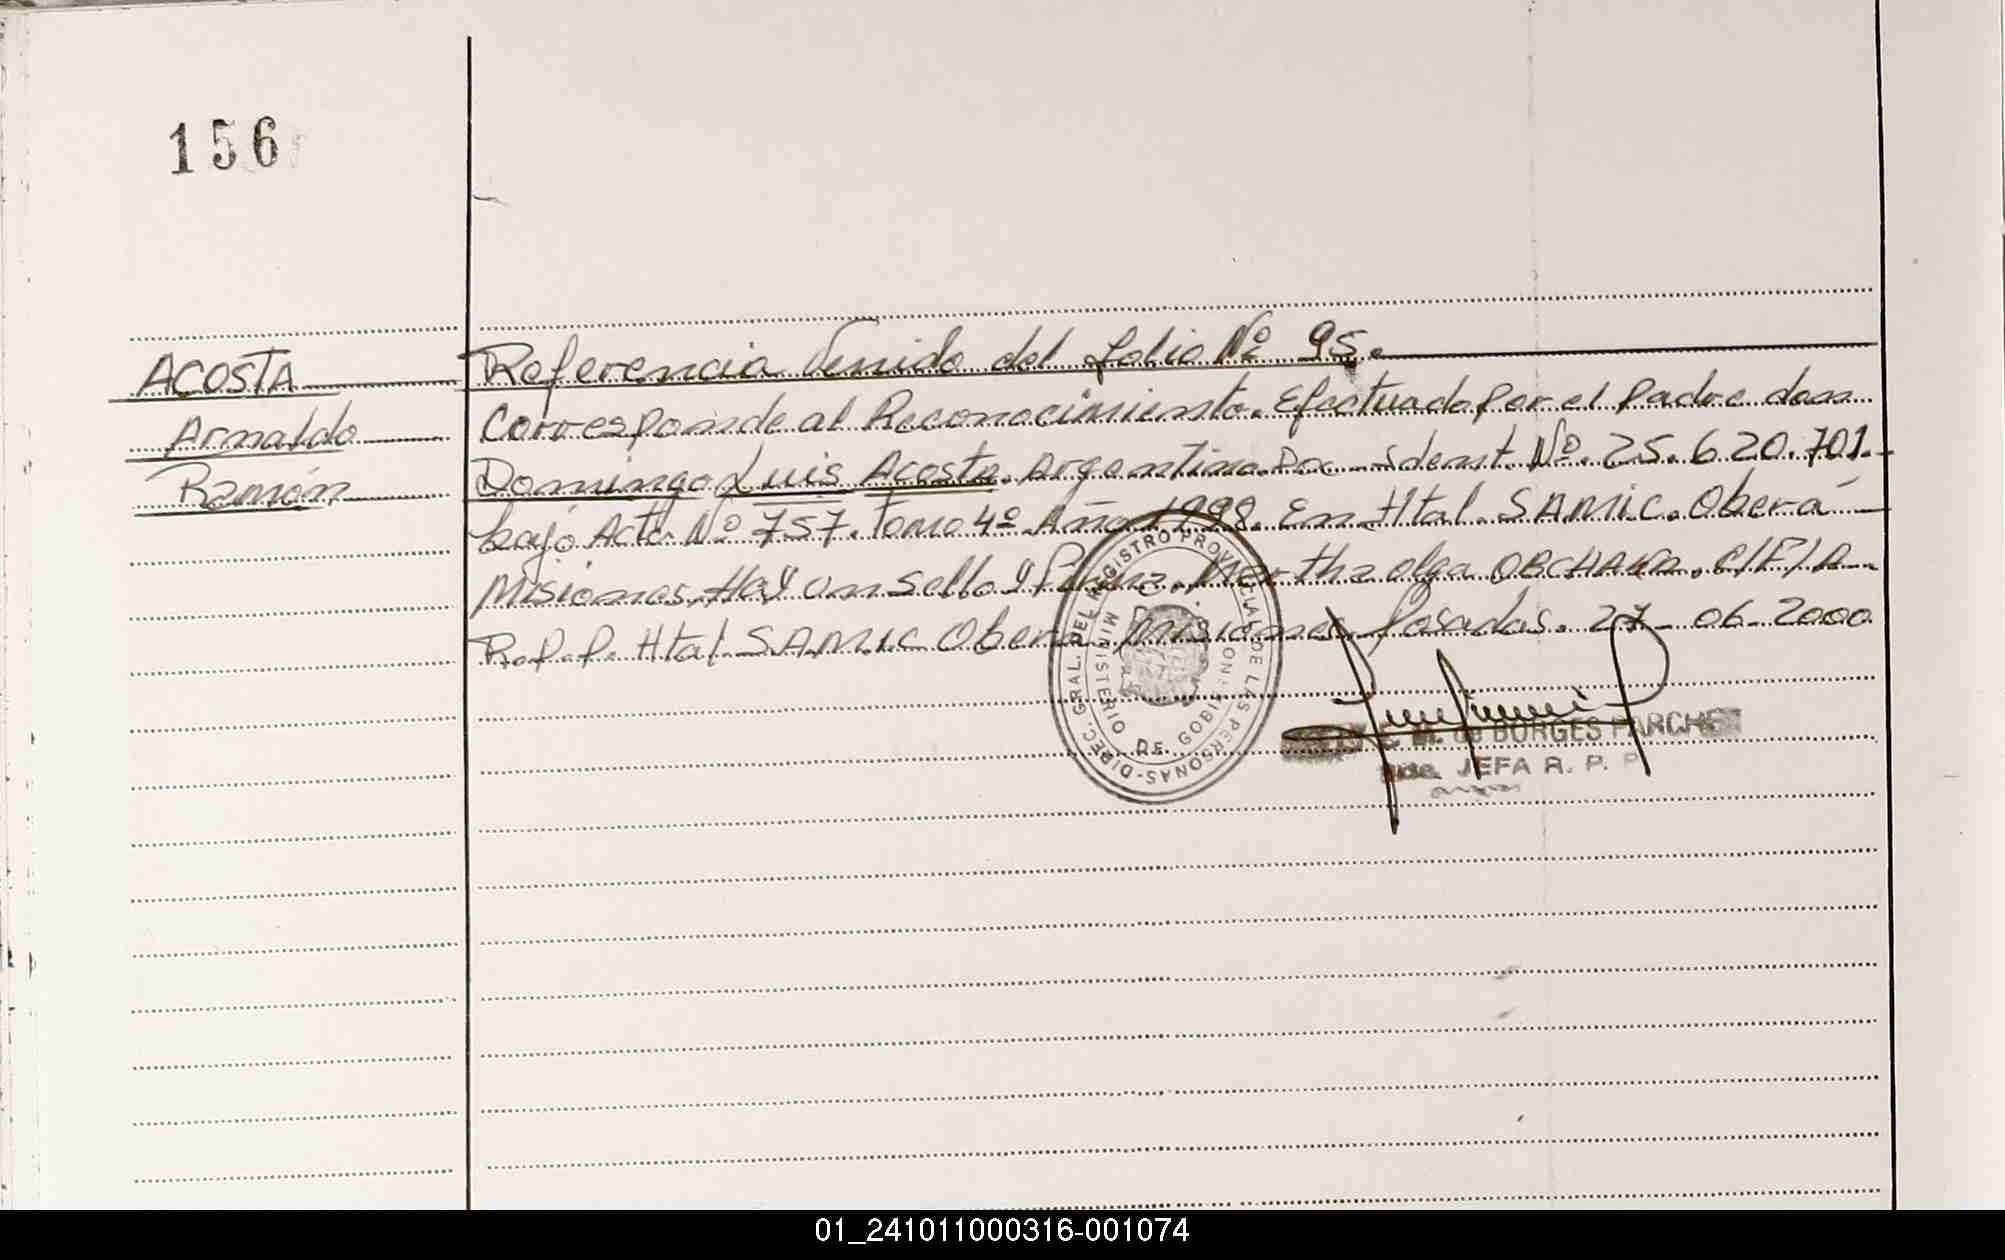 156
ACOSTA
Arnaldo
Ramón
Referencia Venido del folio Nº 95.
Corresponde al Reconocimiento. Efectuado por el Padre don
Domingo Luis Acosta. Argentino. Doc. Ident. Nº. 25.620.701.-
bajo Acta Nº 757. Tomo 4º. Año 1998. En Htal. SAMIC. Oberá -
Misiones. Hay un sello y firma. Mertha olga
R.P.P. Htal SAMIC Oberá Misiones. Posadas. 27-06-2000
DIREC. GRAL. DEL REGISTRO PROVINCIAL DE LAS PERSONAS-
MINISTERIO DE GOBIERNO
M. de BORGES PARCHE
JEFA R. P. P
01_241011000316-001074